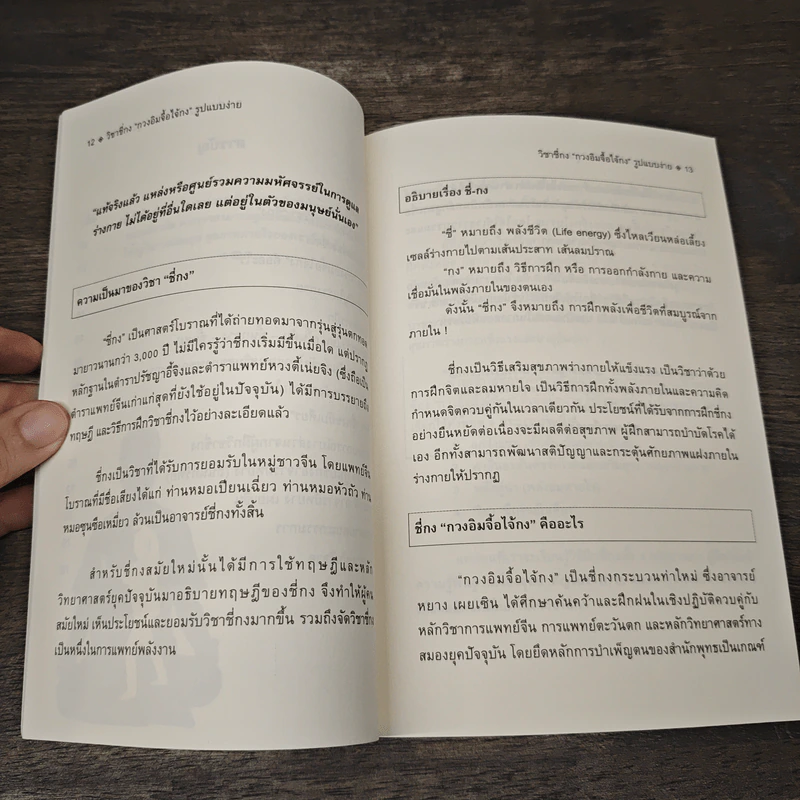 12 ◆ วิชาชี่กง "กวงอิมจื้อไจ้กง" รูปแบบง่าย
"แท้จริงแล้ว แหล่งหรือศูนย์รวมความมหัศจรรย์ในการดูแล
ร่างกาย ไม่ได้อยู่ที่อื่นใดเลย แต่อยู่ในตัวของมนุษย์นั่นเอง"
ความเป็นมาของวิชา "ชี่กง"
"ชี่กง" เป็นศาสตร์โบราณที่ได้ถ่ายทอดมาจากรุ่นสู่รุ่นตกทอด
มายาวนานกว่า 3,000 ปี ไม่มีใครรู้ว่าชี่กงเริ่มมีขึ้นเมื่อใด แต่ปรากฏ
หลักฐานในตำราปรัชญาอี้จิงและตำราแพทย์หวงตี้เน่ยจิง (ซึ่งถือเป็น
ตำราแพทย์จีนเก่าแก่สุดที่ยังใช้อยู่ในปัจจุบัน) ได้มีการบรรยายถึง
ทฤษฎี และวิธีการฝึกวิชาชี่กงไว้อย่างละเอียดแล้ว
ชี่กงเป็นวิชาที่ได้รับการยอมรับในหมู่ชาวจีน โดยแพทย์จีน
โบราณที่มีชื่อเสียงได้แก่ ท่านหมอเปียนเฉี่ยว ท่านหมอหัวถัว ท่าน
หมอซุนซือเหมี่ยว ล้วนเป็นอาจารย์ชี่กงทั้งสิ้น
สำหรับชี่กงสมัยใหม่นั้นได้มีการใช้ทฤษฎีและหลัก
วิทยาศาสตร์ยุคปัจจุบันมาอธิบายทฤษฎีของชี่กง จึงทำให้ผู้คน
สมัยใหม่ เห็นประโยชน์และยอมรับวิชาชี่กงมากขึ้น รวมถึงจัดวิชาชี่กง
เป็นหนึ่งในการแพทย์พลังงาน
วิชาชี่กง "กวงอิมจื้อไจ้กง" รูปแบบง่าย ◆ 13
อธิบายเรื่อง ชี่-กง
"ชี่" หมายถึง พลังชีวิต (Life energy) ซึ่งไหลเวียนหล่อเลี้ยง
เซลล์ร่างกายไปตามเส้นประสาท เส้นลมปราณ
"กง" หมายถึง วิธีการฝึก หรือ การออกกำลังกาย และความ
เชื่อมั่นในพลังภายในของตนเอง
ดังนั้น "ชี่กง" จึงหมายถึง การฝึกพลังเพื่อชีวิตที่สมบูรณ์จาก
ภายใน !
ชี่กงเป็นวิธีเสริมสุขภาพร่างกายให้แข็งแรง เป็นวิชาว่าด้วย
การฝึกจิตและลมหายใจ เป็นวิธีการฝึกทั้งพลังภายในและความคิด
กำหนดจิตควบคู่กันในเวลาเดียวกัน ประโยชน์ที่ได้รับจากการฝึกชี่กง
อย่างยืนหยัดต่อเนื่องจะมีผลดีต่อสุขภาพ ผู้ฝึกสามารถบำบัดโรคได้
เอง อีกทั้งสามารถพัฒนาสติปัญญาและกระตุ้นศักยภาพแฝงภายใน
ร่างกายให้ปรากฏ
ชี่กง "กวงอิมจื้อไจ้กง" คืออะไร
"กวงอิมจื้อไจ้กง" เป็นชี่กงกระบวนท่าใหม่ ซึ่งอาจารย์
หยาง เผยเซิน ได้ศึกษาค้นคว้าและฝึกฝนในเชิงปฏิบัติควบคู่กับ
หลักวิชาการแพทย์จีน การแพทย์ตะวันตก และหลักวิทยาศาสตร์ทาง
สมองยุคปัจจุบัน โดยยึดหลักการบำเพ็ญตนของสำนักพุทธเป็นเกณฑ์